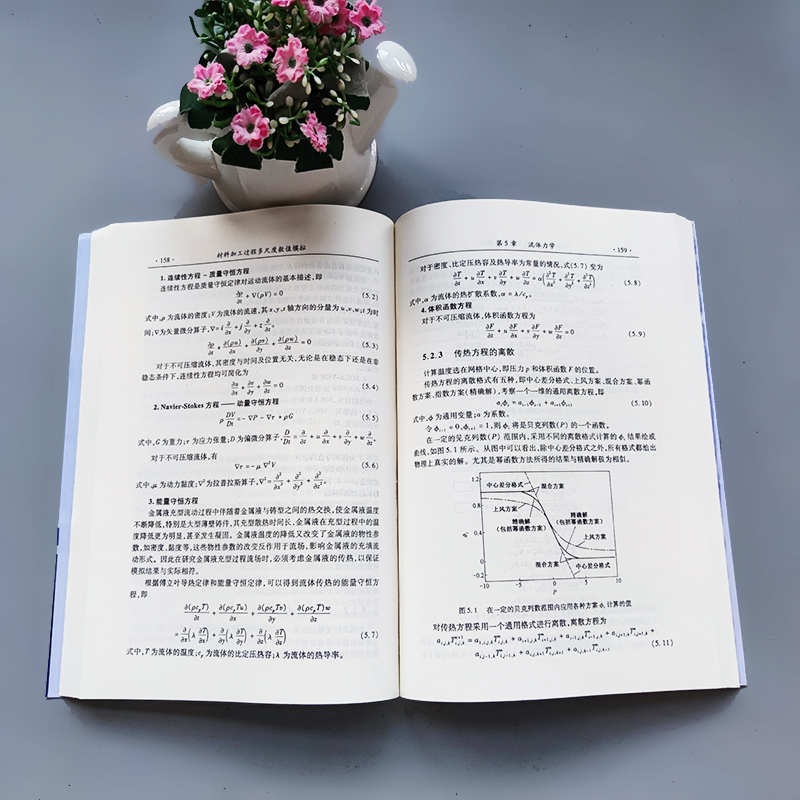 · 158 ·
材料加工过程多尺度数值模拟
1. 连续性方程 – 质量守恒方程
连续性方程是质量守恒定律对运动流体的基本描述,即
∂ρ/∂t + ∇(ρV) = 0 (5.2)
式中,ρ 为流体的密度;V 为流体的流速,其 x、y、z 轴方向的分量为 u、v、w;t 为时
间;∇为矢量微分算子,∇=i ∂/∂x + j ∂/∂y + z ∂/∂z。
∂ρ/∂t + ∂(ρu)/∂x + ∂(ρv)/∂y + ∂(ρw)/∂z = 0 (5.3)
对于不可压缩流体,其密度与时间及位置无关,无论是在稳态下还是在非
稳态条件下,连续性方程均可简化为
∂u/∂x + ∂v/∂y + ∂w/∂z = 0 (5.4)
2. Navier-Stokes 方程 —— 动量守恒方程
ρ DV/Dt = −∇P − ∇τ + ρG (5.5)
式中,G 为重力;τ 为应力张量;D 为偏微分算子,D/Dt = ∂/∂t + u ∂/∂x + v ∂/∂y + w ∂/∂z。
对于不可压缩流体,有
∇τ = −μ ∇²V (5.6)
式中,μ 为动力黏度;∇²为拉普拉斯算子,∇² = ∂²/∂x² + ∂²/∂y² + ∂²/∂z²。
3. 能量守恒方程
金属液充型流动过程中伴随着金属液与铸型之间的热交换,使金属液温度
不断降低,特别是大型薄壁铸件,其充型散热时间长,金属液在充型过程中的温
度降低更为明显,甚至发生凝固。金属液温度的降低又改变了金属液的物性参
数,如密度、黏度等,这些物性参数的改变反作用于流场,影响金属液的充填流
动形式。因此在研究金属液充型过程流场时,必须考虑金属液的传热,以保证
模拟结果与实际相符。
根据傅立叶导热定律和能量守恒定律,可以得到流体传热的能量守恒方
程,即
∂(ρcₚT)/∂t + ∂(ρcₚTu)/∂x + ∂(ρcₚTv)/∂y + ∂(ρcₚT)w/∂z
= ∂/∂x(λ ∂T/∂x) + ∂/∂y(λ ∂T/∂y) + ∂/∂z(λ ∂T/∂z) (5.7)
式中,T 为流体的温度;cₚ 为流体的比定压热容;λ 为流体的热导率。
第 5 章 流体力学
· 159 ·
对于密度、比定压热容及热导率为常量的情况,式(5.7) 变为
∂T/∂t + u ∂T/∂x + v ∂T/∂y + w ∂T/∂z = α(∂²T/∂x² + ∂²T/∂y² + ∂²T/∂z²) (5.8)
式中,α 为流体的热扩散系数,α = λ/cₚ。
4. 体积函数方程
对于不可压缩流体,体积函数方程为
∂F/∂t + u ∂F/∂x + v ∂F/∂y + w ∂F/∂z = 0 (5.9)
5.2.3 传热方程的离散
计算温度选在网格中心,即压力 p 和体积函数 F 的位置。
传热方程的离散格式有五种,即中心差分格式、上风方案、混合方案、幂函
数方案、指数方案(精确解),考察一个一维的通用离散方程,即
aᵢϕᵢ = aᵢ₋₁ϕᵢ₋₁ + aᵢ₊₁ϕᵢ₊₁ (5.10)
式中,ϕ 为通用变量;a 为系数。
令 ϕᵢ₋₁ = 0,ϕᵢ₊₁ = 1,则 ϕᵢ 将是贝克列数(P) 的一个函数。
在一定的见克列数(P) 范围内,采用不同的离散格式计算的 ϕᵢ 结果绘成
曲线,如图 5.1 所示。从图中可以看出,除中心差分格式之外,所有格式都给出
物理上真实的解。尤其是幂函数方法所得的结果与精确解极为相似。
1.2
中心差分格式
混合方案
0.8
上风方案
精确解
(包括幂函数方案)
ϕᵢ
0.4
精确解
(包括幂函数方案)
上风方案
0
混合方案
中心差分格式
-0.2
-10 -5 0 5 10
P
图 5.1 在一定的贝克列数范围内应用各种方案 ϕᵢ 计算的值
对传热方程采用一个通用格式进行离散,离散方程为
(5.11)